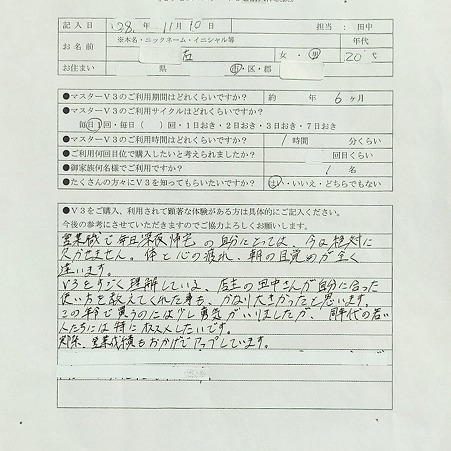 記入日 '08. 年 11月 10日 担当：田中
※本名・ニックネーム・イニシャル等 年代
お名前 女・男 20
お住まい 県 市・区・郡
●マスターV3のご利用期間はどれくらいですか？ 約 年 6ヶ月
●マスターV3のご利用サイクルはどれくらいですか？
毎日1回・毎日（ ）回・1日おき・2日おき・3日おき・7日おき
●マスターV3のご利用時間はどれくらいですか？ 1時間 分くらい
●ご利用何回目位で購入したいと考えられましたか？ 回目くらい
●御家族何名様でご利用ですか？ 1名
●たくさんの方々にV3を知ってもらいたいですか？ はい・いいえ・どちらでもない
●V3をご購入、利用されて顕著な体験がある方は具体的にご記入ください。
今後の参考にさせていただきますのでご協力よろしくお願いします。
営業職で毎日深夜帰宅の自分にとっては、今は絶対に
欠かせません。体と心の疲れ、朝の目覚めが全く
違います。
V3をすごく理解している、店主の田中さんが自分に合った
使い方を教えてくれた事も、かなり大きかったと思います。
この年で買うのには少し勇気がいりましたが、同年代の若い
人たちには特にオススメしたいです。
実際、営業成績もおかげでアップしています。